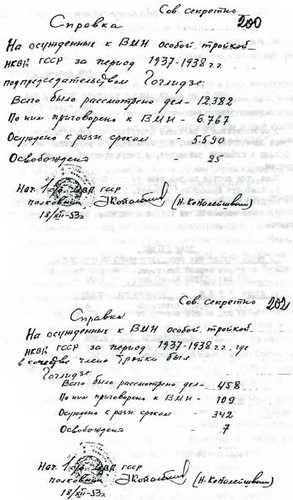 Сов. секретно
200
Справка
На осужденных к ВМН особой тройкой
НКВД ГССР за период 1937-1938 г.г.
под председательством Гоглидзе:
Всего было рассмотрено дел - 12.382
По ним приговорено к ВМН - 6.767
Осуждено к разн. срокам - 5.590
Освобождена - 25
Нач. 1 МВД ГССР
полковник (Н. Копалейшвили)
18/XII-53г.
Сов. секретно 202
Справка
На осужденных к ВМН особой тройкой
НКВД ГССР за период 1937-1938 г.г., где
в качестве члена тройки был
Гоглидзе
Всего было рассмотрено дел - 458
По ним приговорено к ВМН - 109
Осуждено к разн. срокам - 342
Освобождена - 7
Нач. 1 МВД ГССР
полковник (Н. Копалейшвили)
18/XII-53г.